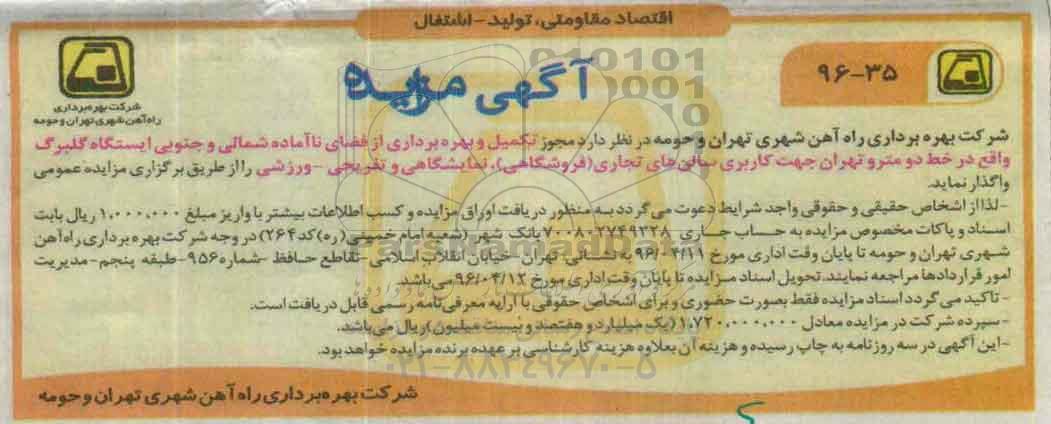 اقتصاد مقاومتی، تولید-اشتغال
۹۶-۳۵
آگهی مزایده
شرکت بهره‌برداری
راه‌آهن شهری تهران و حومه
شرکت بهره برداری راه آهن شهری تهران و حومه در نظر دارد مجوز تکمیل و بهره برداری از فضای ناآماده شمالی و جنوبی ایستگاه گلبرگ
واقع در خط دو مترو تهران جهت کاربری سالن های تجاری(فروشگاهی)، نمایشگاهی و تفریحی -ورزشی را از طریق برگزاری مزایده عمومی
واگذار نماید.
-لذا از اشخاص حقیقی و حقوقی واجد شرایط دعوت می گردد به منظور دریافت اوراق مزایده و کسب اطلاعات بیشتر با واریز مبلغ ۱،۰۰۰،۰۰۰ ریال بابت
اسناد و پاکات مخصوص مزایده به حساب جاری ۷۰۰۸۰۲۷۴۹۲۲۸ بانک شهر (شعبه امام خمینی(ره) کد ۲۶۴) در وجه شرکت بهره برداری راه آهن
شهری تهران و حومه تا پایان وقت اداری مورخ ۹۶/۰۴/۱۱ به نشانی تهران-خیابان انقلاب اسلامی-تقاطع حافظ -شماره ۹۵۶-طبقه پنجم-مدیریت
امور قراردادها مراجعه نمایند. تحویل اسناد مزایده تا پایان وقت اداری مورخ ۹۶/۰۴/۱۲ می باشد.
-تاکید می گردد اسناد مزایده فقط بصورت حضوری و برای اشخاص حقوقی با ارایه معرفی نامه رسمی قابل دریافت است.
-سپرده شرکت در مزایده معادل ۱،۷۲۰،۰۰۰،۰۰۰ (یک میلیارد و هفتصد و بیست میلیون) ریال می باشد.
-این آگهی در سه روزنامه به چاپ رسیده و هزینه آن بعلاوه هزینه کارشناسی بر عهده برنده مزایده خواهد بود.
۰۲۱-۸۸۳۴۹۶۷۰-۵
شرکت بهره‌برداری راه آهن شهری تهران و حومه